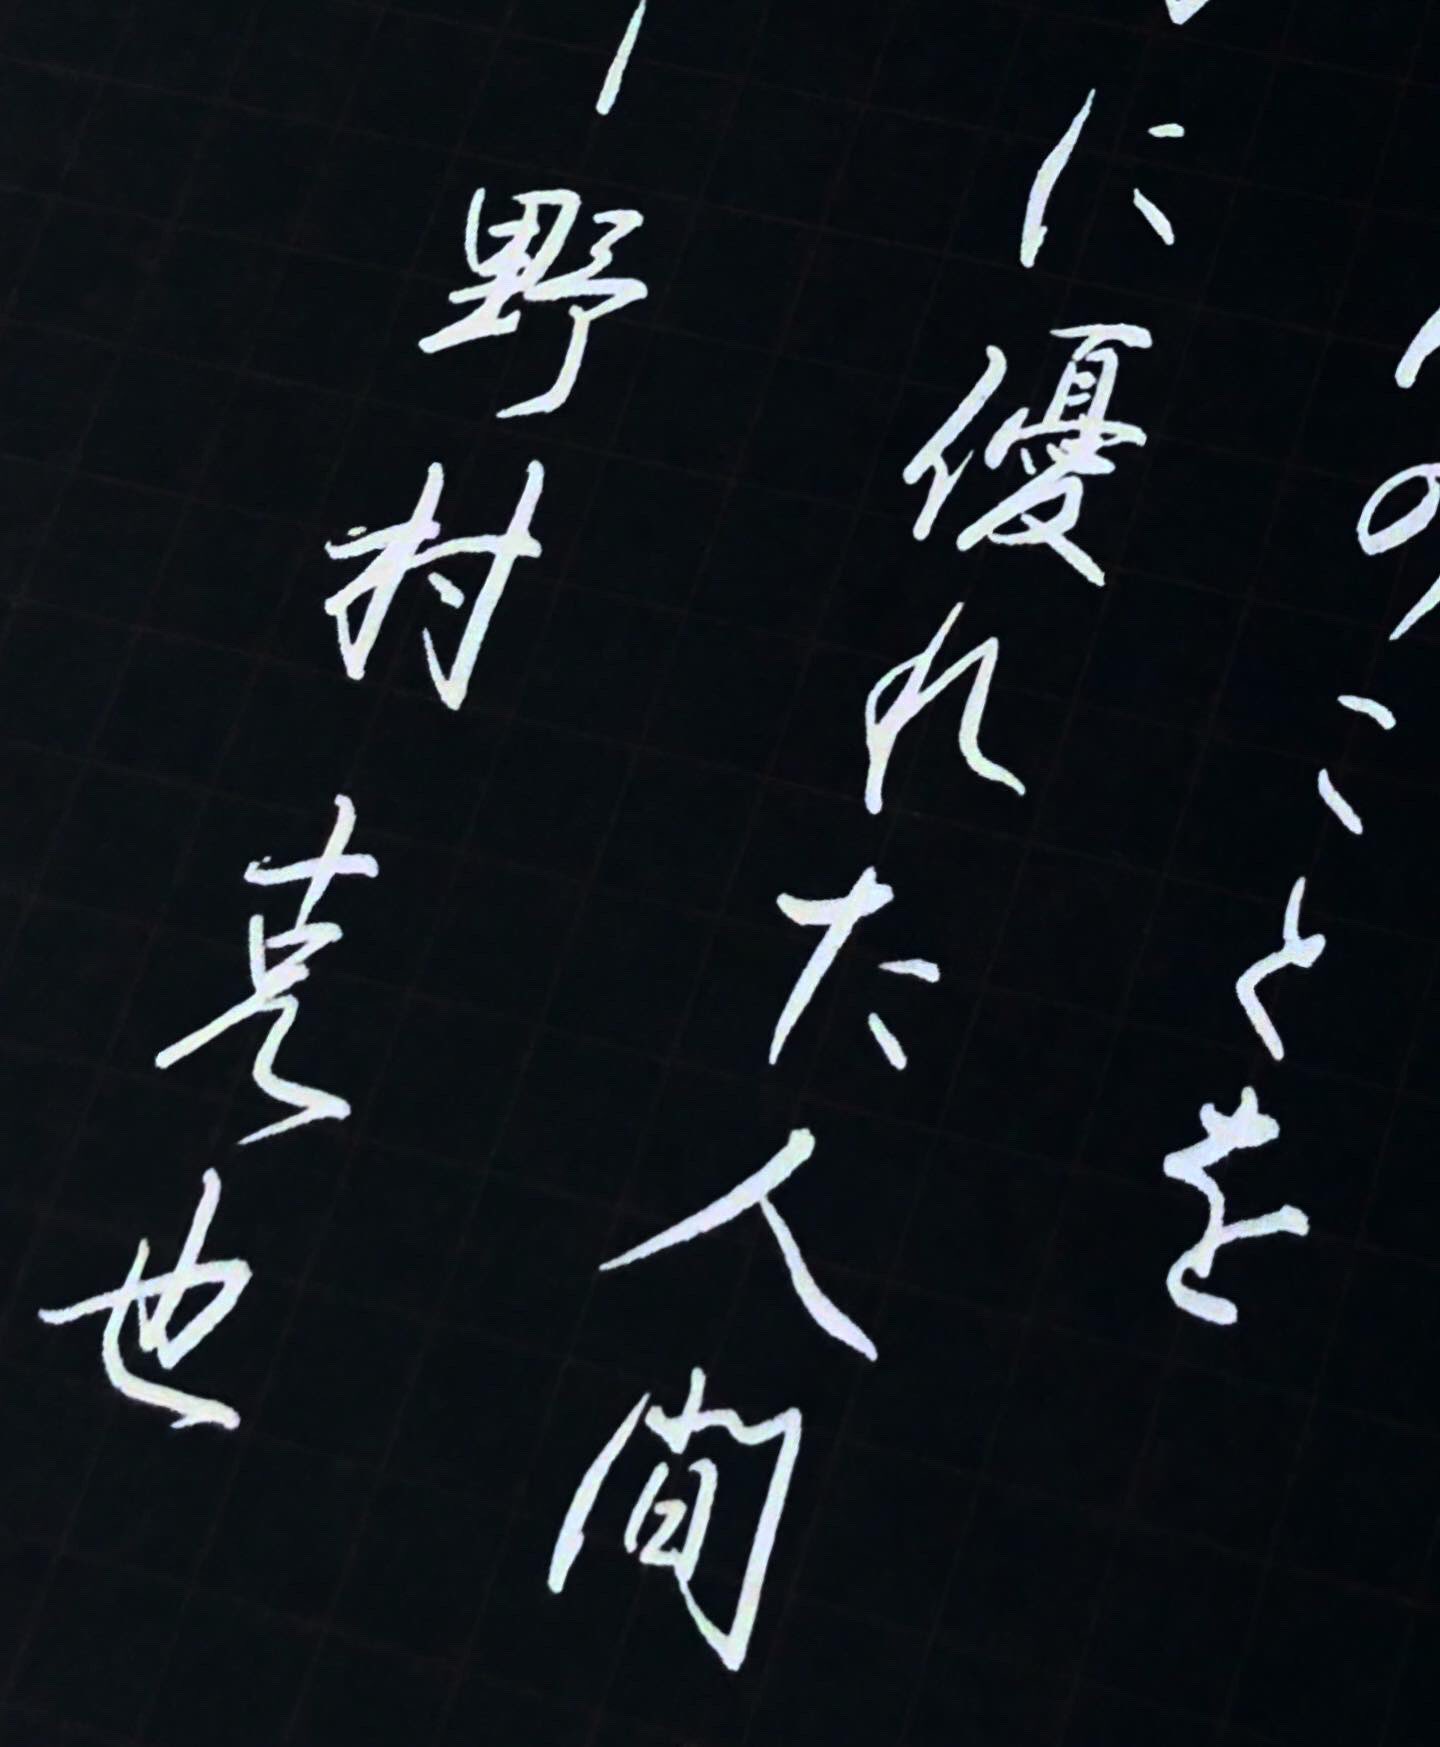 のことを
に優れた人間
ー野村克也